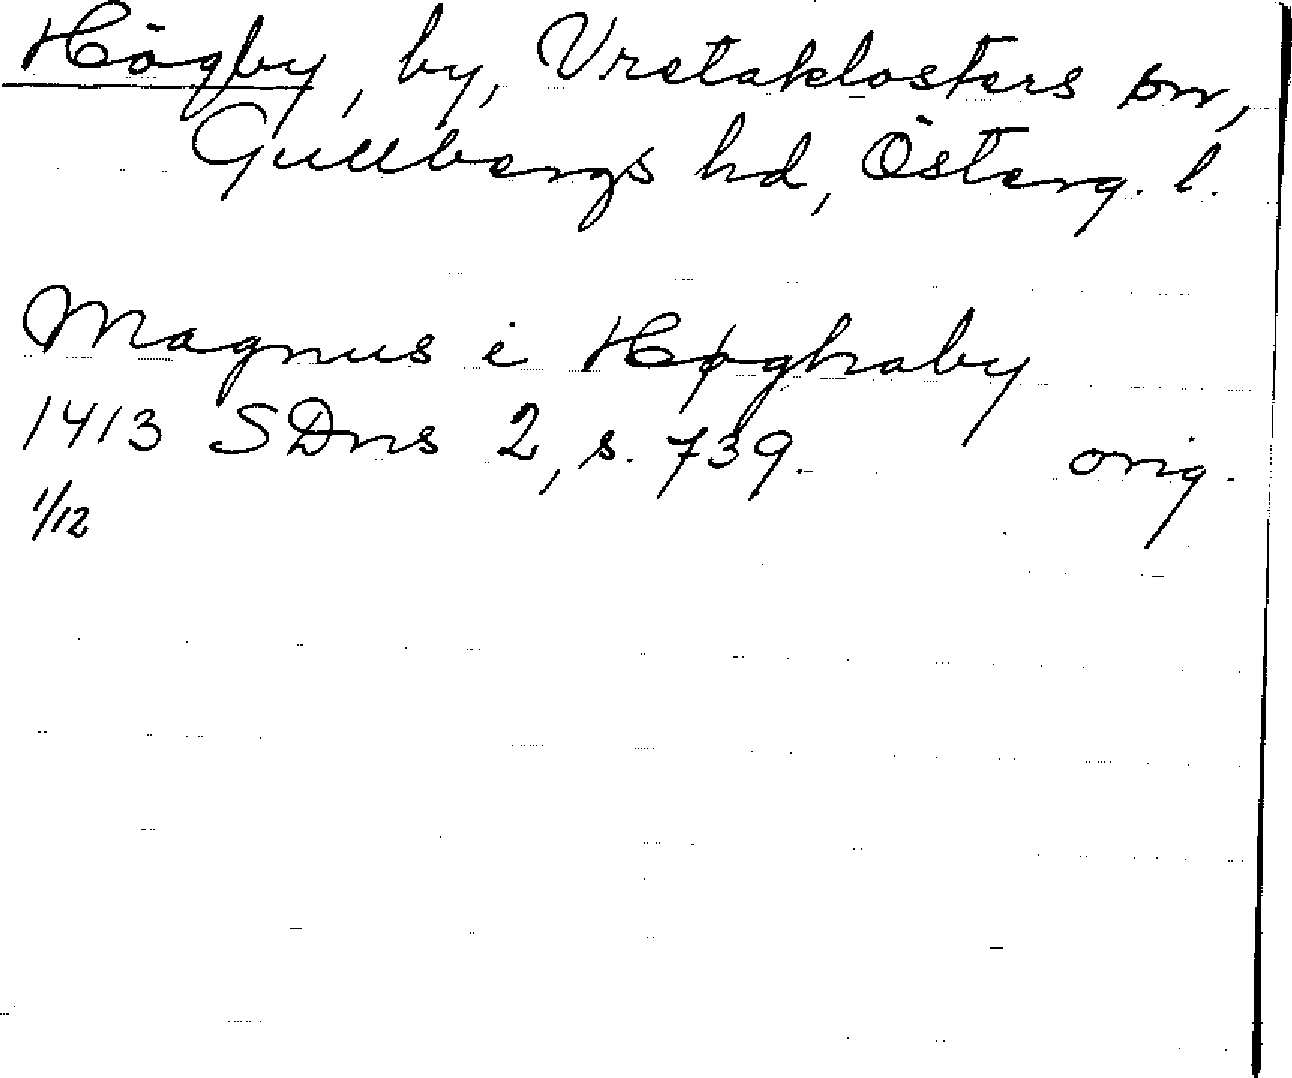 Högby, by, Vretaklosters sn,
Gullbergs hd, Österg. l.
Magnus i Høghaby
1413 SDns 2, s. 739. orig.
1/12